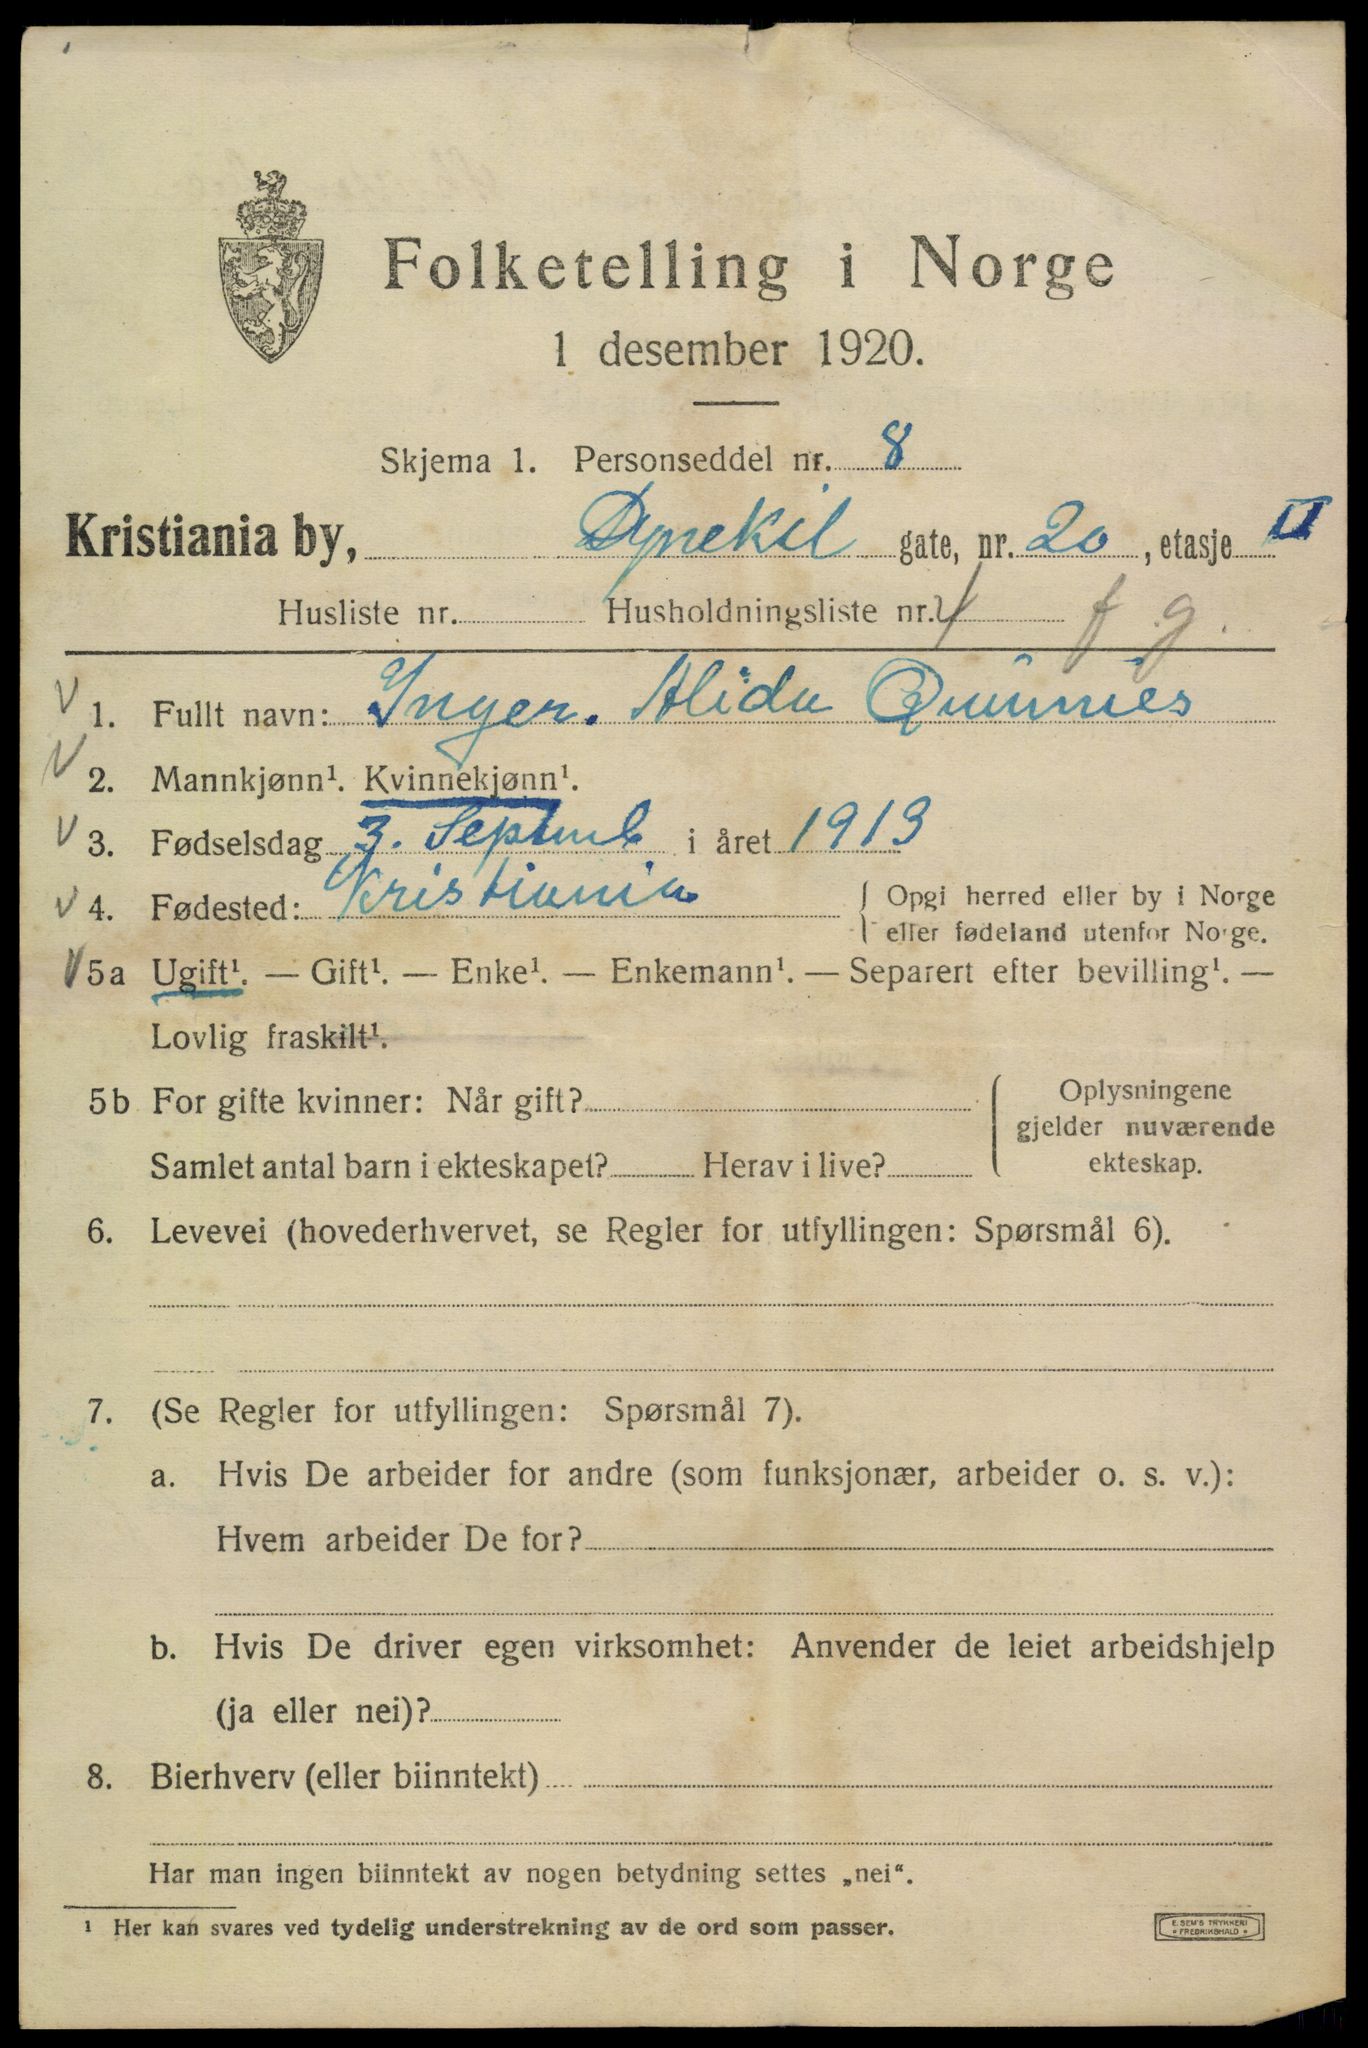 Folketelling i Norge
1 desember 1920.
Skjema 1. Personseddel nr. 8
Kristiania by, Dynekil gate, nr. 20, etasje II
Husliste nr. Husholdningsliste nr. 4 f g.
1. Fullt navn: Inger. Alida
2. Mannkjønn¹. Kvinnekjønn¹.
3. Fødselsdag 3. Septemb i året 1913
4. Fødested: Kristiania { Opgi herred eller by i Norge
eller fødeland utenfor Norge.
5a Ugift¹. — Gift¹. — Enke¹. — Enkemann¹. — Separert efter bevilling¹. —
Lovlig fraskilt¹.
5b For gifte kvinner: Når gift? { Oplysningene
gjelder nuværende
Samlet antal barn i ekteskapet? Herav i live? ekteskap.
6. Levevei (hovederhvervet, se Regler for utfyllingen: Spørsmål 6).
7. (Se Regler for utfyllingen: Spørsmål 7).
a. Hvis De arbeider for andre (som funksjonær, arbeider o. s. v.):
Hvem arbeider De for?
b. Hvis De driver egen virksomhet: Anvender de leiet arbeidshjelp
(ja eller nei)?
8. Bierhverv (eller biinntekt)
Har man ingen biinntekt av nogen betydning settes „nei“.
¹ Her kan svares ved tydelig understrekning av de ord som passer.
E. SEM'S TRYKKERI
* FREDRIKSHALD *